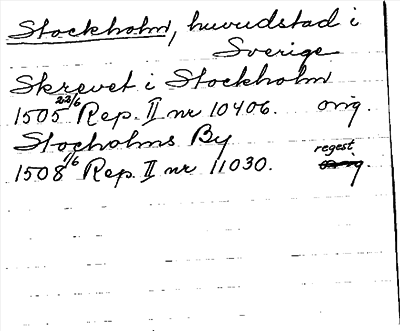 Stockholm, huvudstad i
Sverige
Skrevet i Stockholm
1505 22/6 Rep. II nr 10406. orig.
Stocholms By
1508 1/6 Rep. II nr 11030. regest.